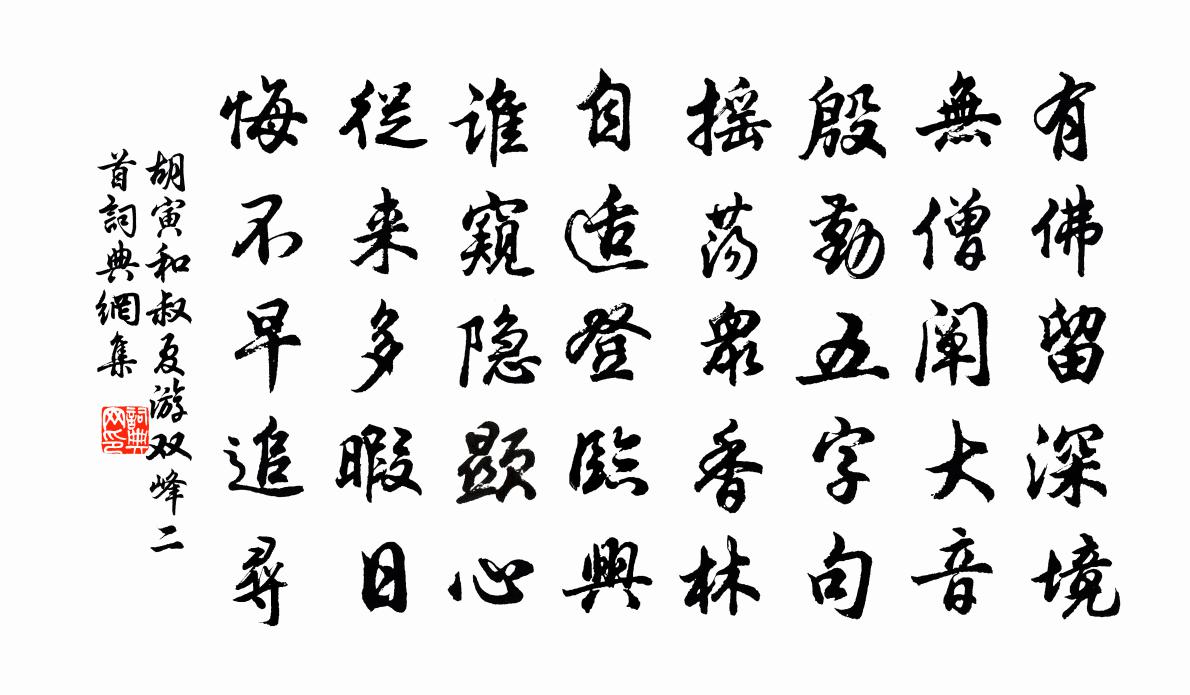 有佛留深境
無僧闡大音
殷勤五字句
摇蕩衆香林
自适登臨興
谁窺隐顯心
從来多暇日
悔不早追尋
胡寅和叔夏游双峰二
首詞典網集
詞典网印